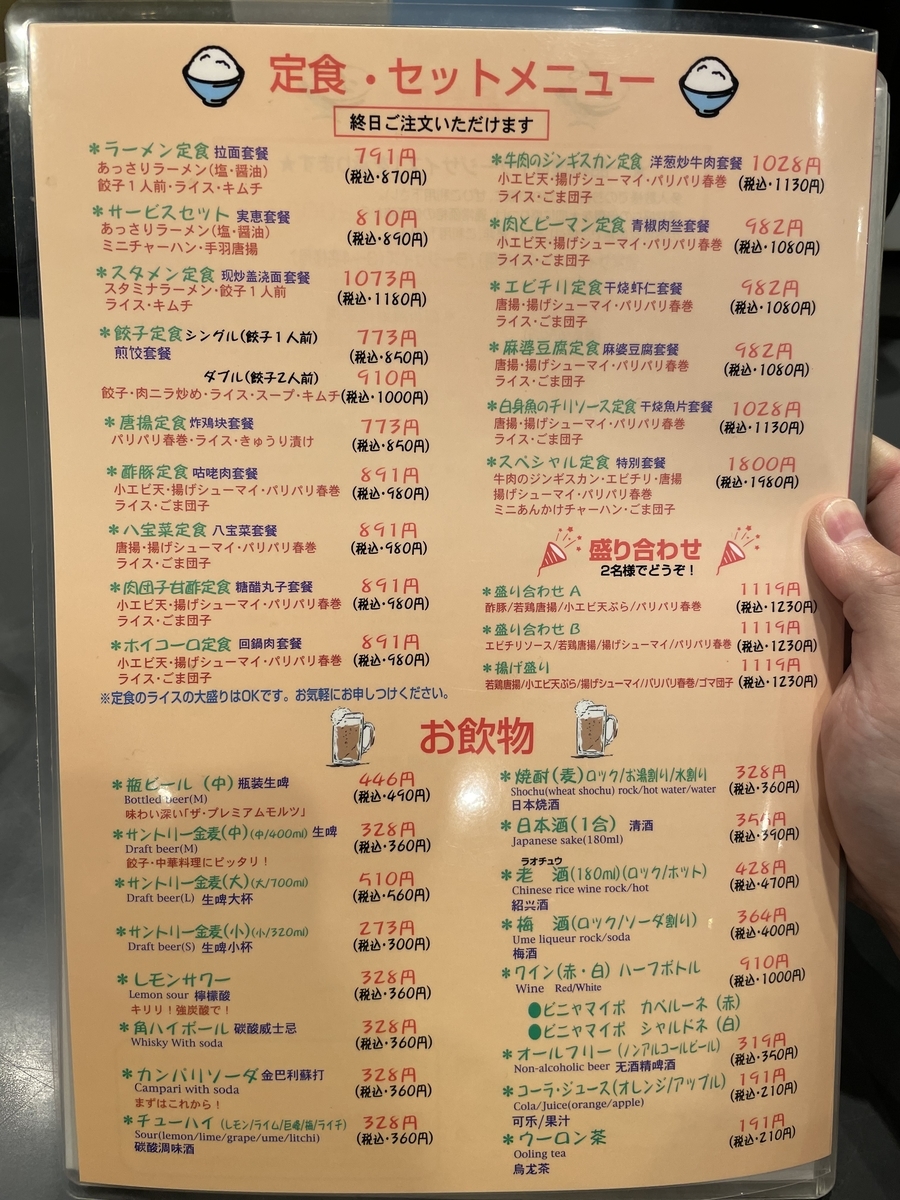 定食・セットメニュー
終日ご注文いただけます
*ラーメン定食 拉面套餐 791円
あっさりラーメン(塩・醤油) (税込・870円)
餃子1人前・ライス・キムチ
*サービスセット 実恵套餐 810円
あっさりラーメン(塩・醤油) (税込・890円)
ミニチャーハン・手羽唐揚
*スタメン定食 现炒盖浇面套餐 1073円
スタミナラーメン・餃子1人前 (税込・1180円)
ライス・キムチ
*餃子定食 シングル(餃子1人前) 773円
煎饺套餐 (税込・850円)
ダブル(餃子2人前) 910円
餃子・肉ニラ炒め・ライス・スープ・キムチ (税込・1000円)
*唐揚定食 炸鸡块套餐 773円
パリパリ春巻・ライス・きゅうり漬け (税込・850円)
*酢豚定食 咕咾肉套餐 891円
小エビ天・揚げシューマイ・パリパリ春巻 (税込・980円)
ライス・ごま団子
*八宝菜定食 八宝菜套餐 891円
唐揚・揚げシューマイ・パリパリ春巻 (税込・980円)
ライス・ごま団子
*肉団子甘酢定食 糖醋丸子套餐 891円
小エビ天・揚げシューマイ・パリパリ春巻 (税込・980円)
ライス・ごま団子
*ホイコーロ定食 回鍋肉套餐 891円
小エビ天・揚げシューマイ・パリパリ春巻 (税込・980円)
ライス・ごま団子
※定食のライスの大盛りはOKです。お気軽にお申しつけください。
*牛肉のジンギスカン定食 洋葱炒牛肉套餐 1028円
小エビ天・揚げシューマイ・パリパリ春巻 (税込・1130円)
ライス・ごま団子
*肉とピーマン定食 青椒肉丝套餐 982円
小エビ天・揚げシューマイ・パリパリ春巻 (税込・1080円)
ライス・ごま団子
*エビチリ定食 干烧虾仁套餐 982円
唐揚・揚げシューマイ・パリパリ春巻 (税込・1080円)
ライス・ごま団子
*麻婆豆腐定食 麻婆豆腐套餐 982円
唐揚・揚げシューマイ・パリパリ春巻 (税込・1080円)
ライス・ごま団子
*白身魚のチリソース定食 干烧魚片套餐 1028円
唐揚・揚げシューマイ・パリパリ春巻 (税込・1130円)
ライス・ごま団子
*スペシャル定食 特別套餐 1800円
牛肉のジンギスカン・エビチリ・唐揚 (税込・1980円)
揚げシューマイ・パリパリ春巻
ミニあんかけチャーハン・ごま団子
盛り合わせ
2名様でどうぞ!
*盛り合わせ A 1119円
酢豚/若鶏唐揚/小エビ天ぷら/パリパリ春巻 (税込・1230円)
*盛り合わせ B 1119円
エビチリソース/若鶏唐揚/揚げシューマイ/パリパリ春巻 (税込・1230円)
*揚げ盛り 1119円
若鶏唐揚/小エビ天ぷら/揚げシューマイ/パリパリ春巻/ゴマ団子 (税込・1230円)
お飲物
*瓶ビール (中) 瓶装生啤 446円
Bottled beer(M) (税込・490円)
味わい深い「ザ・プレミアムモルツ」
*サントリー金麦(中)(中/400ml) 生啤 328円
Draft beer(M) (税込・360円)
餃子・中華料理にピッタリ!
*サントリー金麦(大)(大/700ml) 510円
Draft beer(L) 生啤大杯 (税込・560円)
*サントリー金麦(小)(小/320ml) 273円
Draft beer(S) 生啤小杯 (税込・300円)
*レモンサワー 328円
Lemon sour 檸檬酸 (税込・360円)
キリリ!強炭酸で!
*角ハイボール 碳酸威士忌 328円
Whisky With soda (税込・360円)
*カンパリソーダ 金巴利蘇打 328円
Campari with soda (税込・360円)
まずはこれから!
*チューハイ (レモン/ライム/巨峰/梅/ライチ) 328円
Sour(lemon/lime/grape/ume/litchi) (税込・360円)
碳酸调味酒
*焼酎(麦)ロック/お湯割り/水割り 328円
Shochu(wheat shochu) rock/hot water/water (税込・360円)
日本烧酒
*日本酒(1合) 清酒
Japanese sake(180ml) (税込・390円)
ラオチュウ
*老 酒(180ml)(ロック/ホット) 428円
Chinese rice wine rock/hot (税込・470円)
紹兴酒
*梅 酒(ロック/ソーダ割り) 364円
Ume liqueur rock/soda (税込・400円)
梅酒
*ワイン(赤・白) ハーフボトル 910円
Wine Red/White (税込・1000円)
●ビニャマイポ カベルーネ (赤)
●ビニャマイポ シャルドネ (白)
*オールフリー (ノンアルコールビール) 319円
Non-alcoholic beer 无酒精啤酒 (税込・350円)
*コーラ・ジュース(オレンジ/アップル) 191円
Cola/Juice(orange/apple) (税込・210円)
可乐/果汁
*ウーロン茶 191円
Ooling tea (税込・210円)
烏龙茶